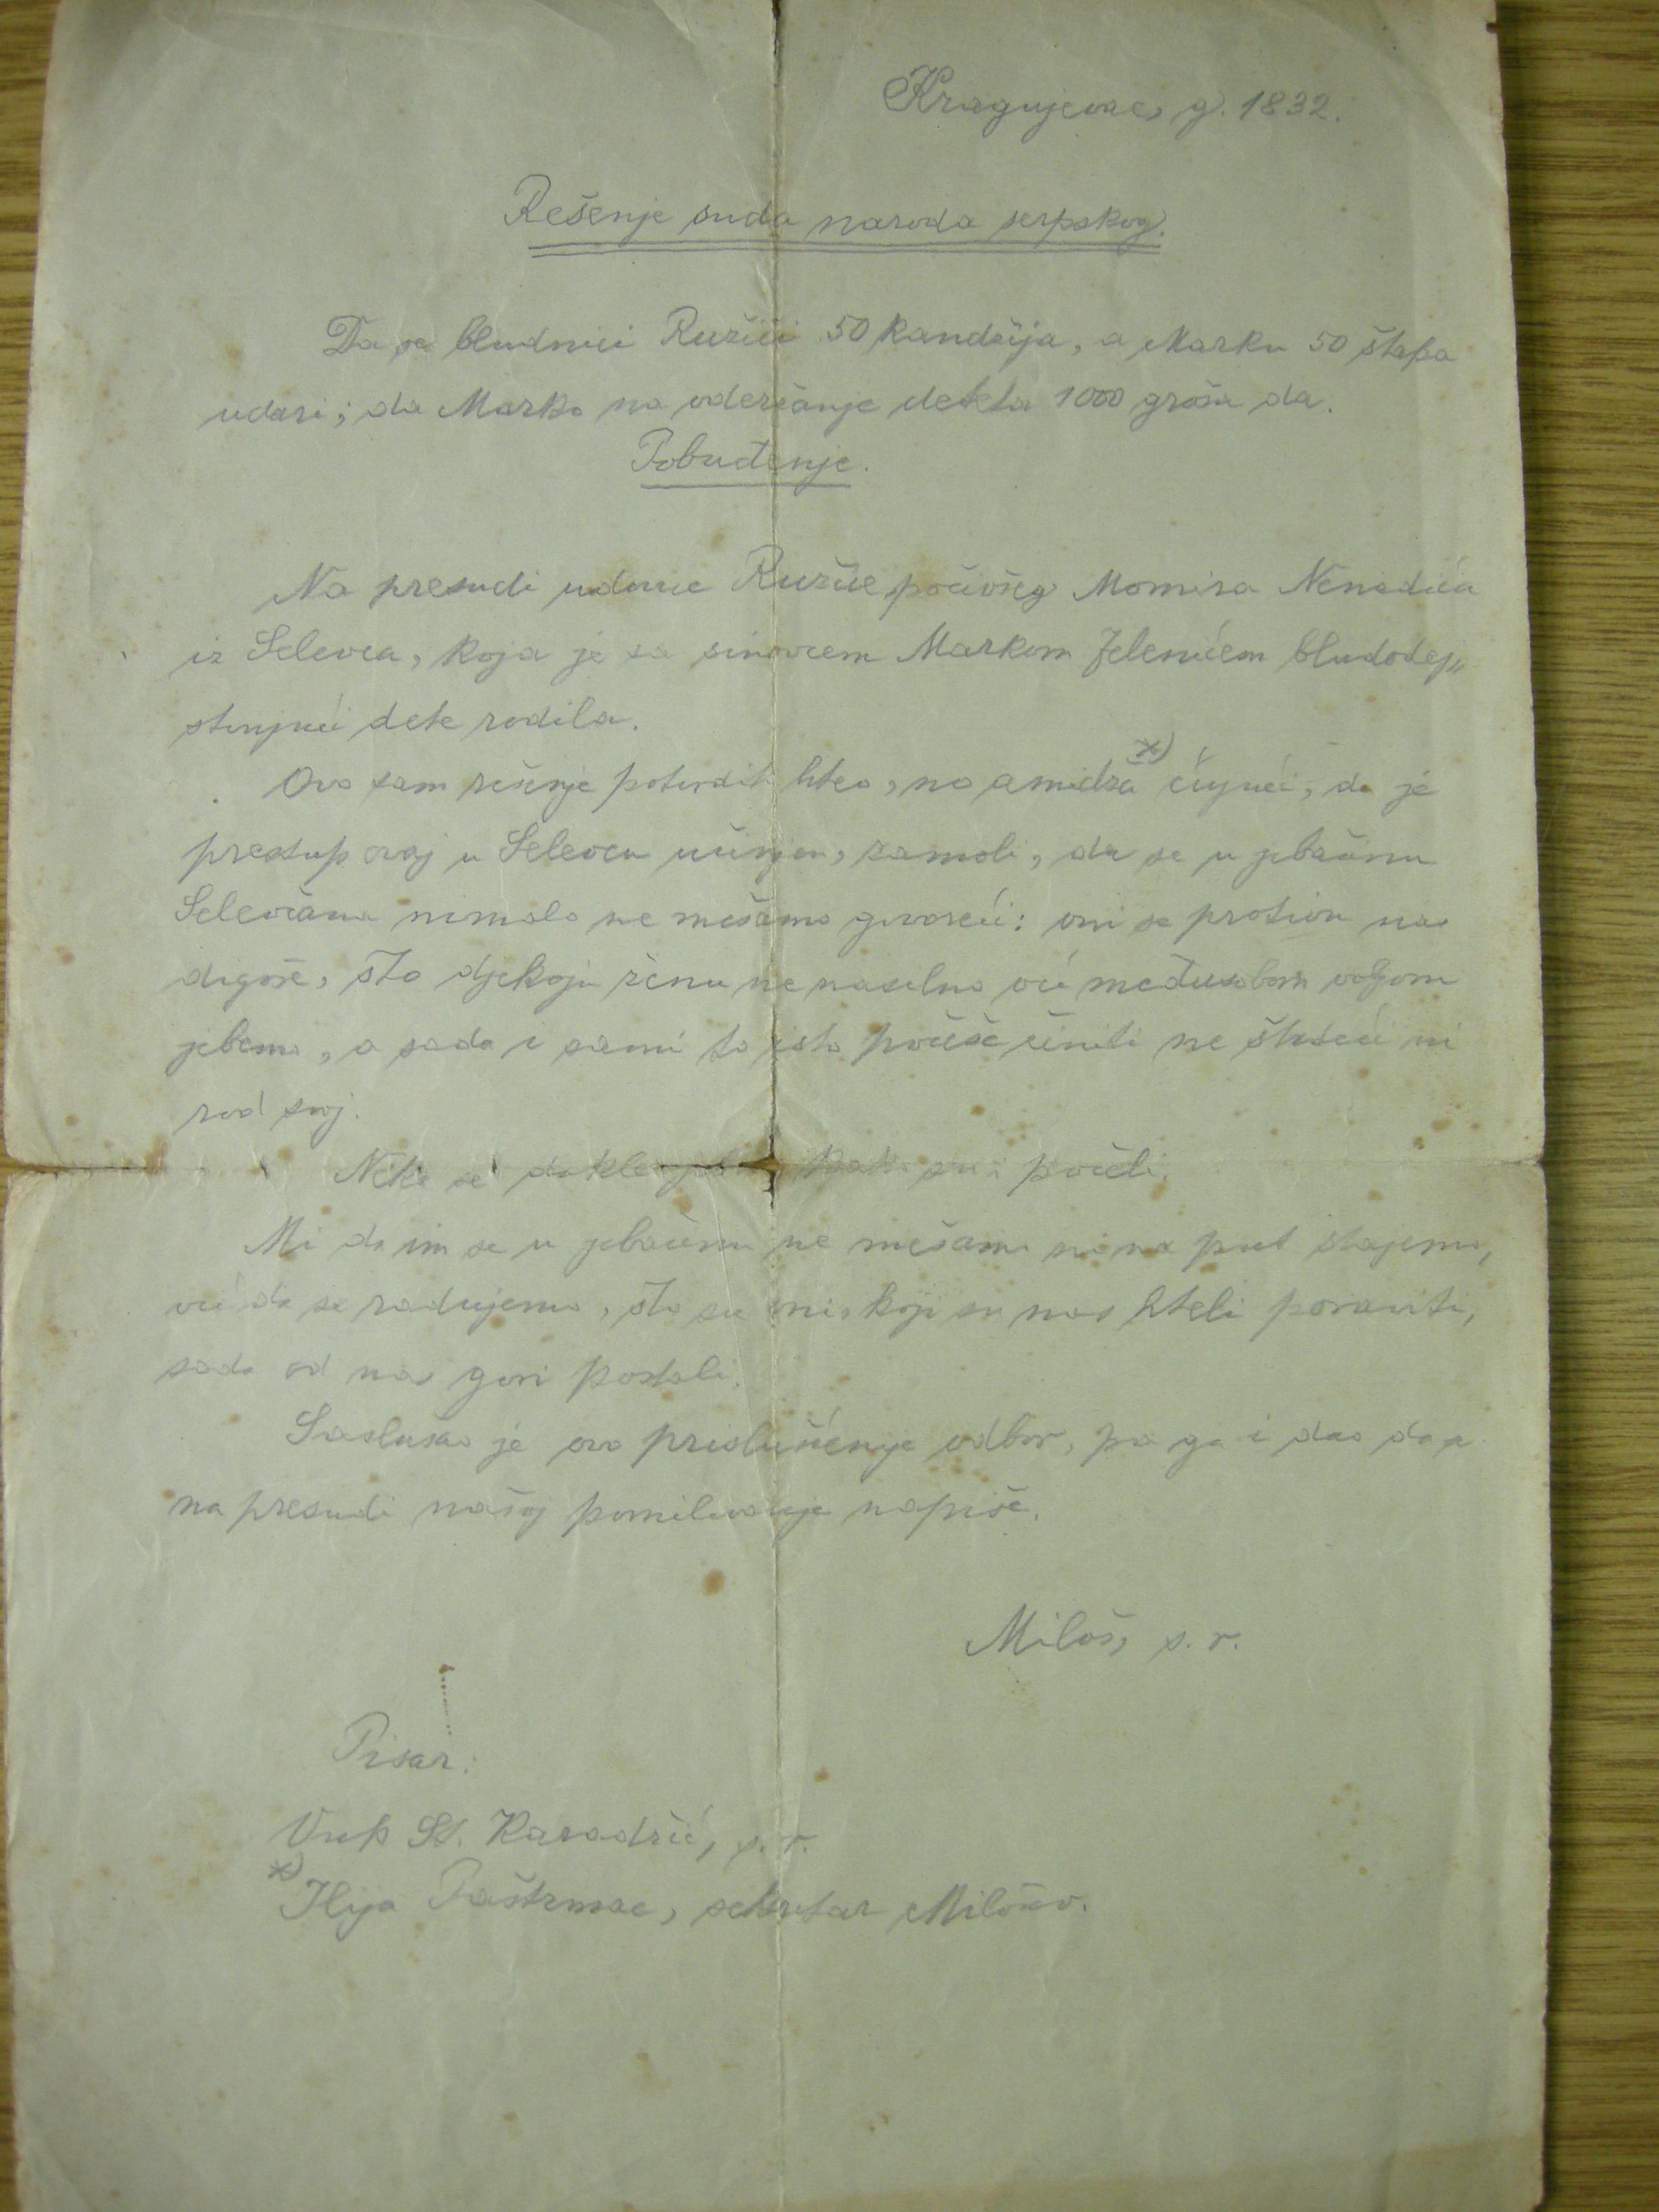 Kragujevac, g. 1832.
Rešenje suda naroda serpskog.
Da se bludnici Ružici 50 kandžija, a Marku 50 štapa
udari; da Marko na oderžanje deteta 1000 groša da.
Pobuđenje.
Na presudi udovice Ružice počivšeg Momira Nenadića
iz Selevca, koja je sa sinovcem Markom Jelenićem bludodej„
stvujući dete rodila.
Ovo sam rešenje potvrditi hteo, no amidža x) čujući, da je
prestup ovaj u Selevcu učinjen, zamoli, da se u jebačinu
Selevčana nimalo ne mešamo govoreći: oni se protivu nas
digoše, što djekoju ženu ne nasilno već međusobom voljom
jebemo, a sada i sami to isto počeše činiti ne štedeći ni
rod svoj.
Neka se dakle kako su i počeli.
Mi da im se u jebačinu ne mešamo ni na put stajemo,
već da se radujemo, što su oni, koji su nas hteli poraviti,
sada od nas gori postali.
Saslušao je ovo prislušenije odbor, pa ga i dao da se
na presudi našoj pomilovanje napiše.
Miloš, s. r.
Pisar:
Vuk St. Karadžić, s. r.
x) Ilija sekretar Milošev.